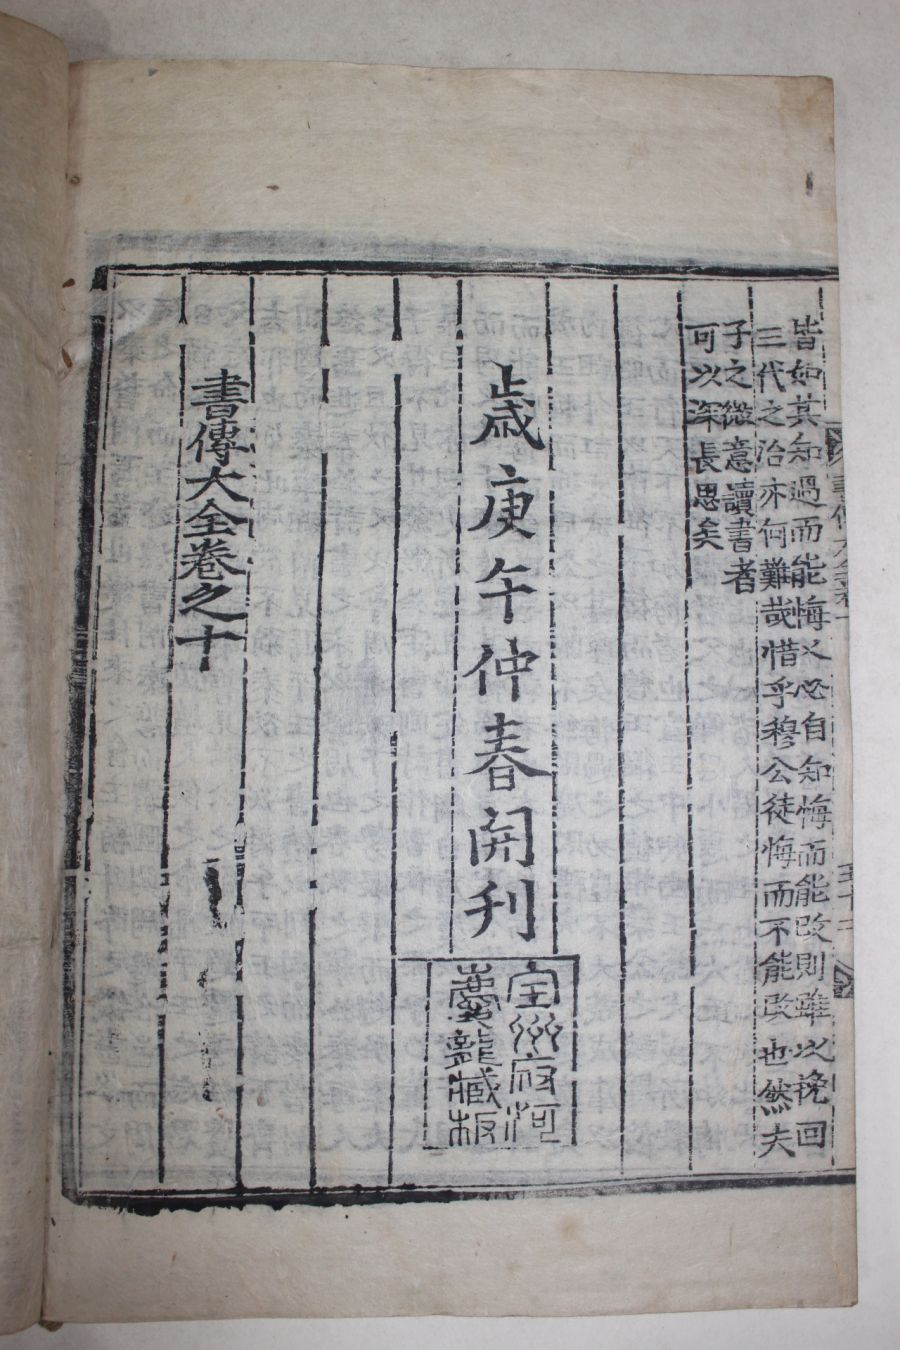 皆如其知過而能悔又必自知悔而能改則雖以挽回
三代之治亦何難哉惜乎穆公徒悔而不能改也然夫
子之微意讀書者
可以深長思矣
歲庚午仲春開刊
全州府河
慶龍藏板
書傳大全卷之十